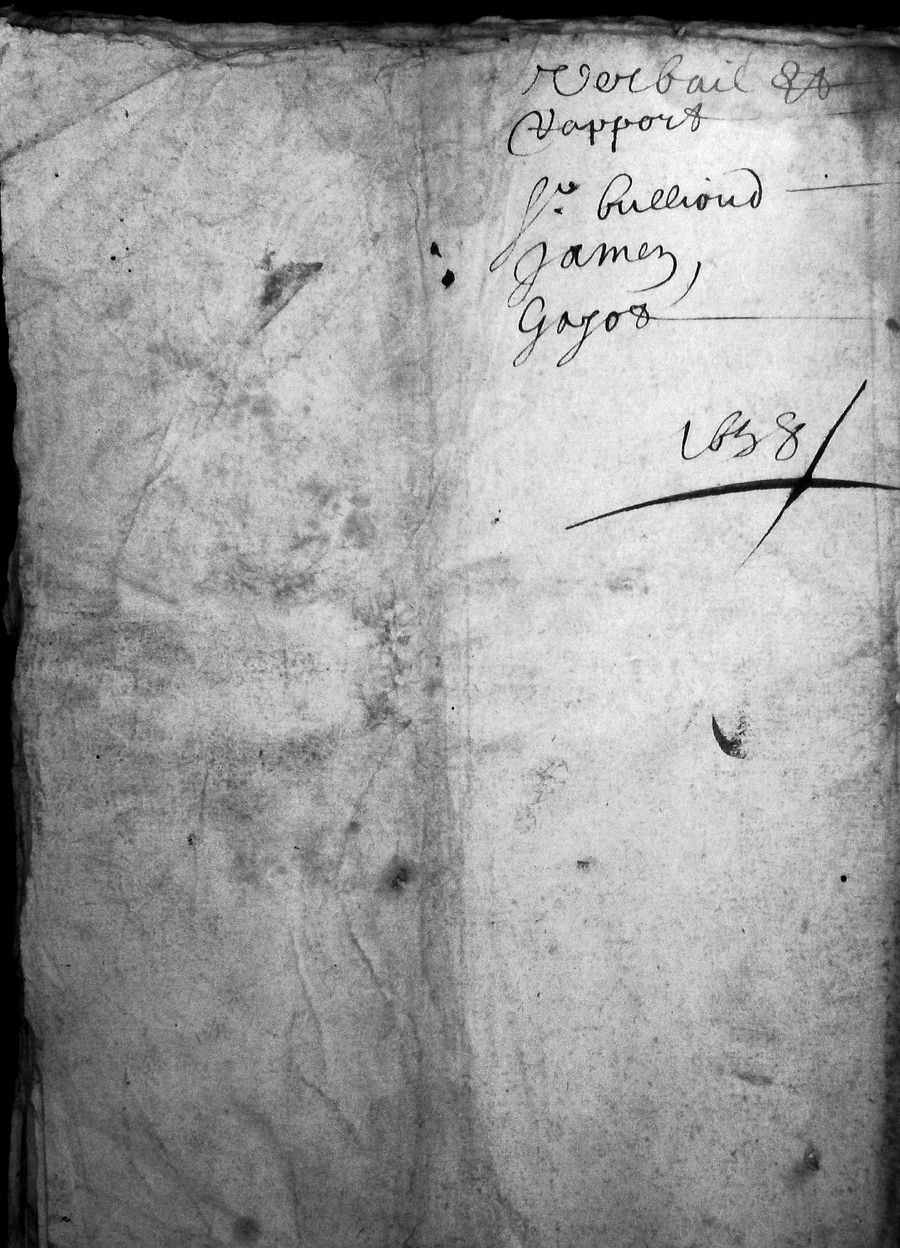 Verbail et
rapport
Sr. bulliond
James,
Gayot
1658